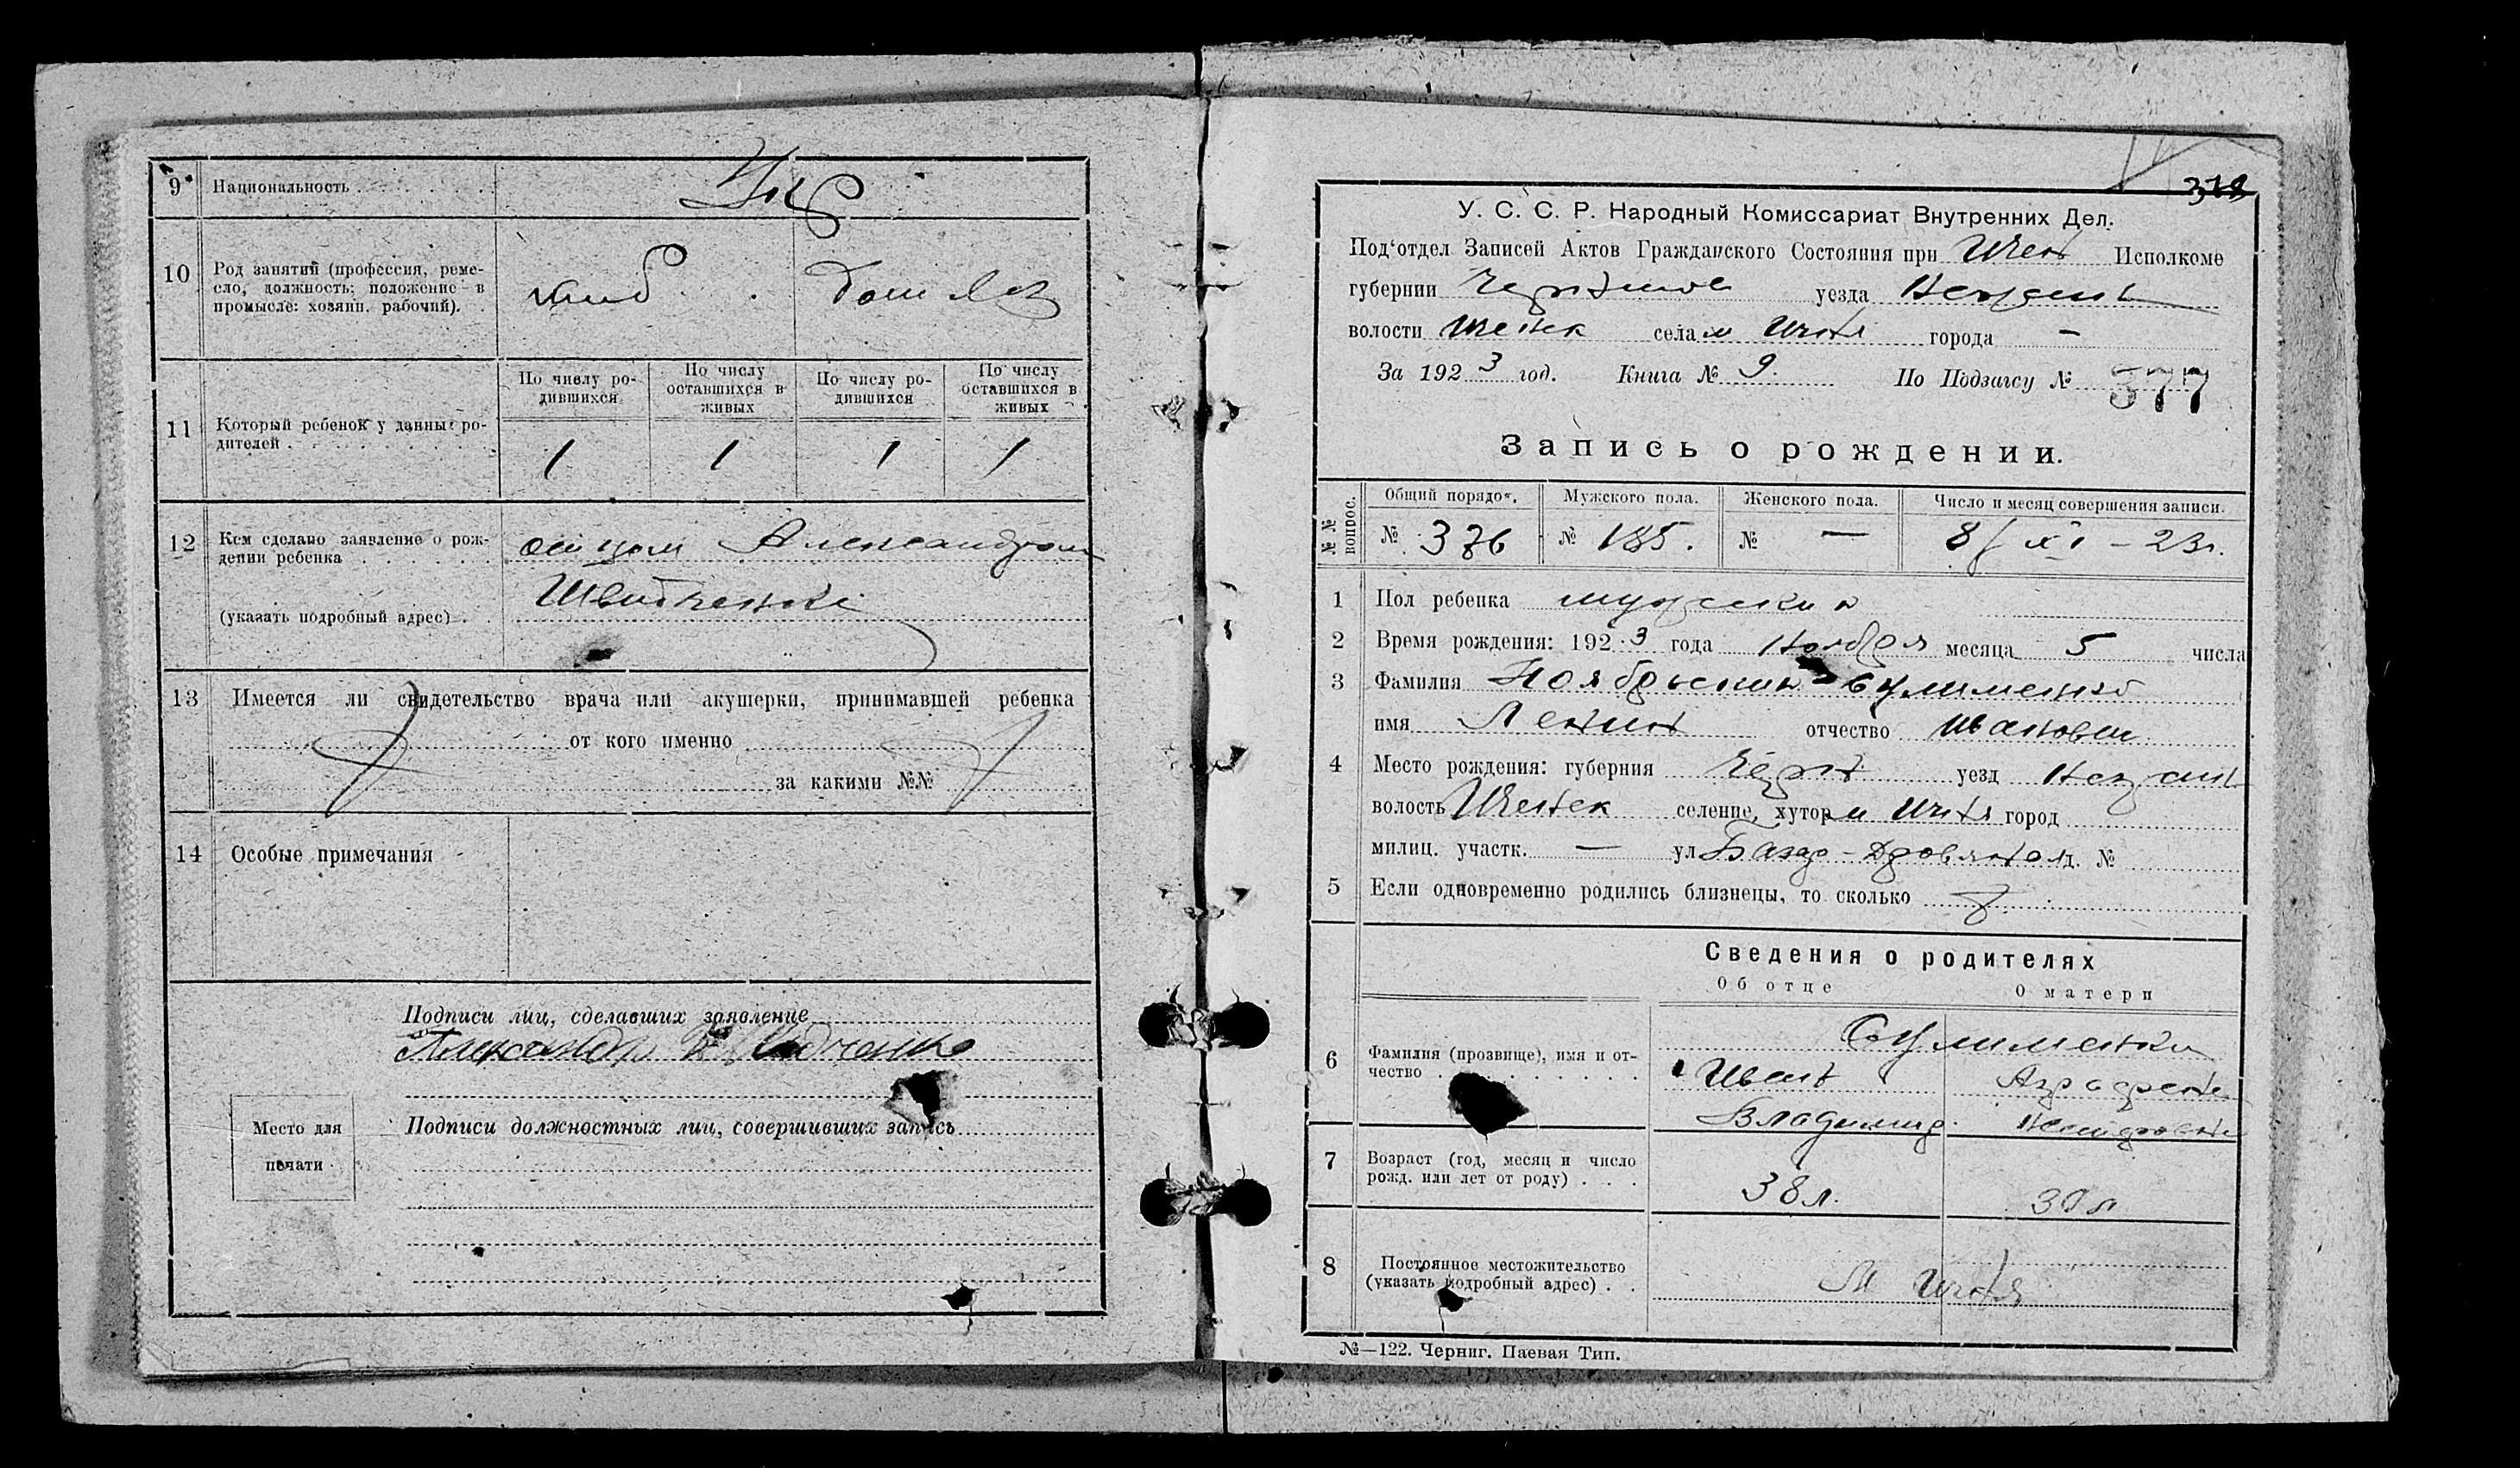 9 Национальность . . . Укр
10 Род занятий (профессия, реме-
сло, должность; положение в
промысле: хозяин, рабочий). . хлиб Дом хоз
11 Который ребенок у данных ро-
дителей . . . . . . .
По числу ро-
дившихся
По числу
оставшихся в
живых
По числу ро-
дившихся
По числу
оставшихся в
живых
1 1 1 1
12 Кем сделано заявление о рож-
дении ребенка . . . . . . отцом Александром
(указать подробный адрес) . .
13 Имеется ли свидетельство врача или акушерки, принимавшей ребенка
от кого именно
за какими №№
14 Особые примечания
Подписи лиц, сделавших заявление
Александр
Место для
печати
Подписи должностных лиц, совершивших запись
У. С. С. Р. Народный Комиссариат Внутренних Дел.
Под'отдел Записей Актов Гражданского Состояния при Ичен Исполкоме
губернии Чернигов уезда Нежинск
волости Иченск села м Ичня города —
За 192 3 год. Книга № 9. По Подзагсу № 377
Запись о рождении.
№№ вопрос.
Общий порядок. Мужского пола. Женского пола. Число и месяц совершения записи.
№ 376 № 185. № — 8/XI – 23г.
1 Пол ребенка мужский
2 Время рождения: 192 3 года Ноября месяца 5 числа
3 Фамилия Ноябрьский-Сулименко
имя Ленин отчество Иванович
4 Место рождения: губерния Черн. уезд Нежинск
волость Иченск селение, хутор м Ичня город
милиц. участк. — ул Базар-Дровяной д. №
5 Если одновременно родились близнецы, то сколько
Сведения о родителях
Об отце О матери
6 Фамилия (прозвище), имя и от-
чество . . . . . . . .
Сулименки
Иван
Владимир.
7 Возраст (год, месяц и число
рожд. или лет от роду) . . . 38 л.
8 Постоянное местожительство
(указать подробный адрес) . . М Ичня
№—122. Черниг. Паевая Тип.